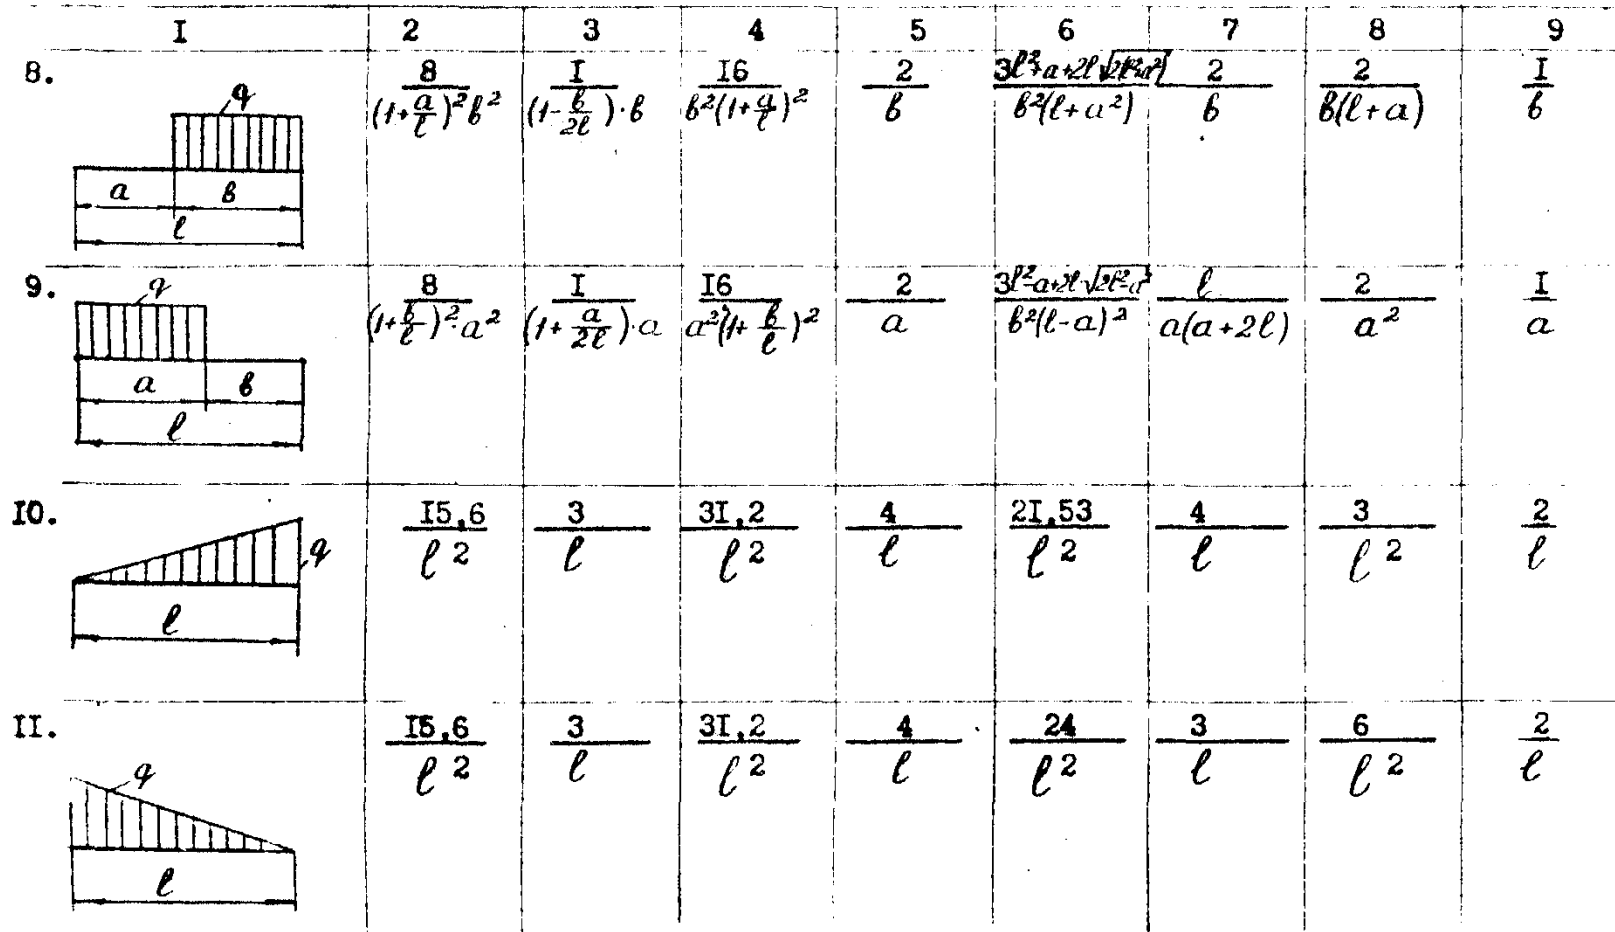 I 2 3 4 5 6 7 8 9
8. q a в ℓ 8/((1+a/ℓ)²в²) I/((1-в/2ℓ)·в) I6/(в²(1+a/ℓ)²) 2/в 3ℓ²+a+2ℓ√(2ℓ²-a²)/(в²(ℓ+a²)) 2/в 2/(в(ℓ+a)) I/в
9. q a в ℓ 8/((1+в/ℓ)²·a²) I/((1+a/2ℓ)·a) I6/(a²(1+в/ℓ)²) 2/a 3ℓ²-a+2ℓ·√(2ℓ²-a²)/(в²(ℓ-a)²) ℓ/(a(a+2ℓ)) 2/a² I/a
I0. q ℓ I5,6/ℓ² 3/ℓ 3I,2/ℓ² 4/ℓ 2I,53/ℓ² 4/ℓ 3/ℓ² 2/ℓ
II. q ℓ I5,6/ℓ² 3/ℓ 3I,2/ℓ² 4/ℓ 24/ℓ² 3/ℓ 6/ℓ² 2/ℓ